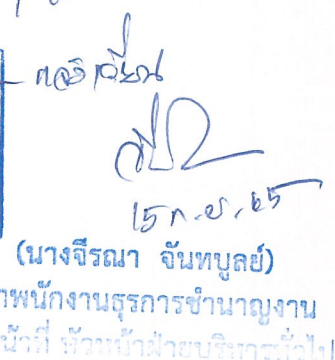 แจ้งเวียน
15 ก.ย. 65
(นางจีรณา จันทบูลย์)
าพนักงานธุรการชำนาญงาน
น้าที่ หัวหน้าฝ่ายบริหารทั่วไป